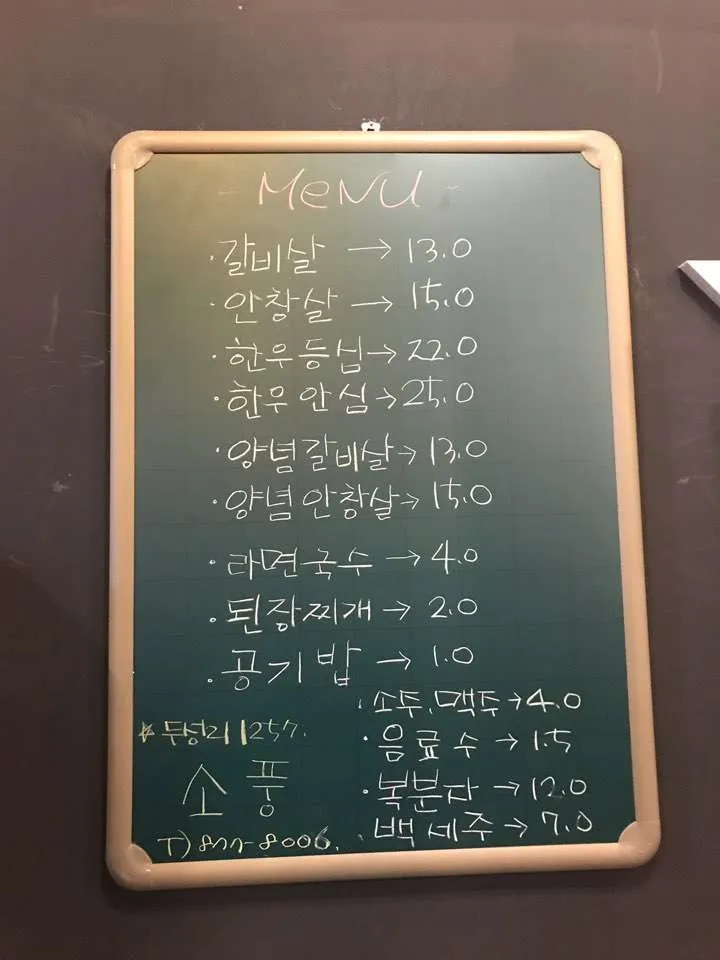 - MeNU -
· 갈비살 → 13.0
· 안창살 → 15.0
· 한우등심 → 22.0
· 한우안심 → 25.0
· 양념갈비살 → 13.0
· 양념안창살 → 15.0
· 라면국수 → 4.0
· 된장찌개 → 2.0
· 공기밥 → 1.0
· 소주.맥주 → 4.0
· 음료수 → 1.5
· 복분자 → 12.0
· 백세주 → 7.0
* 두성리 1257.
소풍
T) 877-8006.